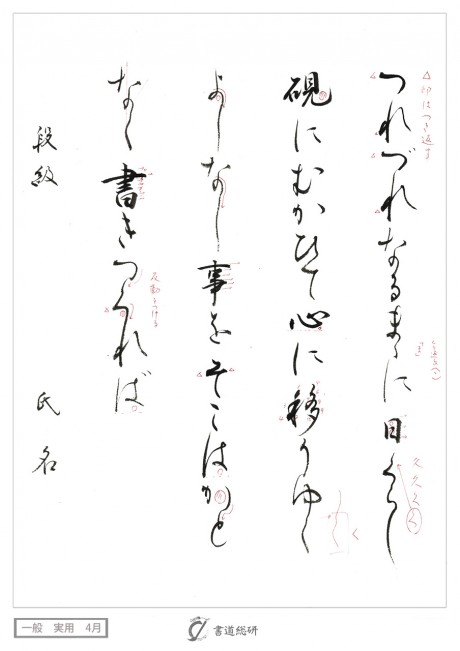 つれづれなるまゝに日くらし
硯にむかひて心に移りゆく
よしなし事をそこはかと
なく書きつくれば
段級 氏名
△印はつき返す
反動をつける
久久くく
一般 実用 4月
書道総研